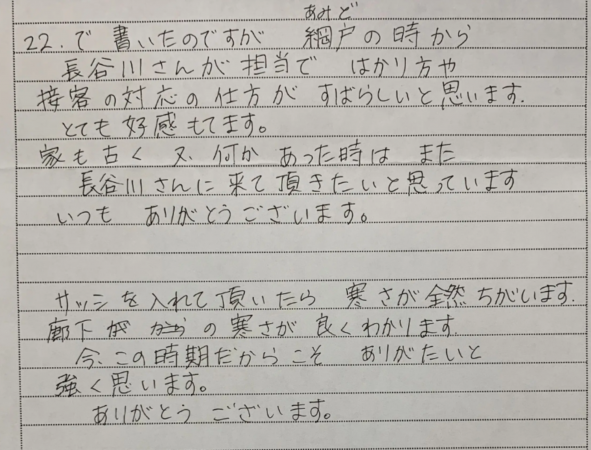 あみど
22.で 書いたのですが 網戸の時から
長谷川さんが 担当で はかり方や
接客の対応の仕方が すばらしいと思います.
とても好感もてます。
家も古く 又、何か あった時は また
長谷川さんに来て頂きたいと思っています
いつも ありがとうございます。
サッシを入れて頂いたら 寒さが全然ちがいます.
廊下が の寒さが 良くわかります
今、この時期だからこそ ありがたいと
強く思います。
ありがとう ございます。